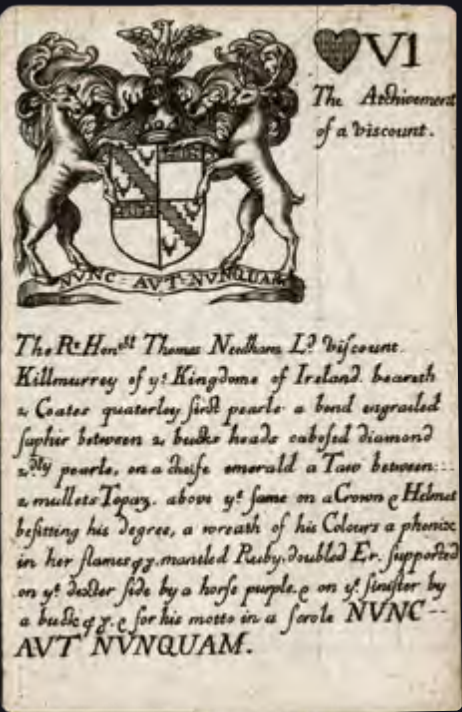 VI
The Atchivement
of a Viscount.
NVNC · AVT · NVNQUAM
The Rt. Honble Thomas Needham Ld. Viscount
Killmurrey of ye. Kingdome of Ireland. beareth
2 Coates quaterley first pearle a bend engrailed
saphir between 2 bucks heads cabosed diamond
2dly pearle, on a cheife emerald a Taw between::
2 mullets Topaz. above ye. same on a Crown & Helmet
befitting his degree, a wreath of his Colours a phenix
in her flames mantled Ruby, doubled Er. supported
on ye. dexter side by a horse purple. & on ye. sinister by
a buck & for his motto in a scrole NVNC--
AVT NVNQUAM.